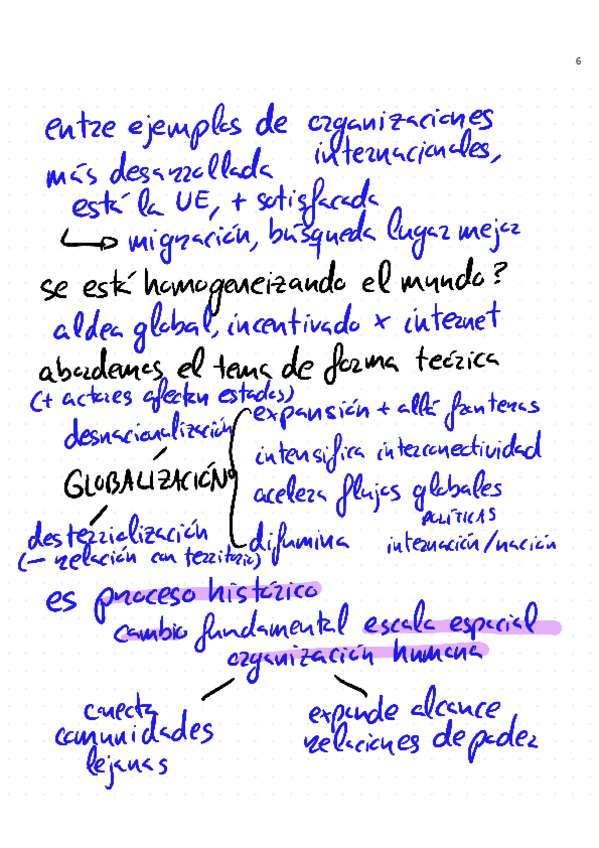 6
entre ejemplos de organizaciones
internacionales,
más desarrollada
está la UE, + satisfacada
migración, búsqueda lugar mejor
se está homogeneizando el mundo?
aldea global, incentivado x internet
abordemos el tema de forma teórica
(+ actores afectan estados)
desnacionalización
expansión + allá fronteras
intensifica interconectividad
GLOBALIZACIÓN
acelera flujos globales
POLÍTICAS
desterrialización
difumina internación/nación
(— relación con territorio)
es proceso histórico
cambio fundamental escala espacial
organización humana
conecta
comunidades
lejanas
expande alcance
relaciones de poder